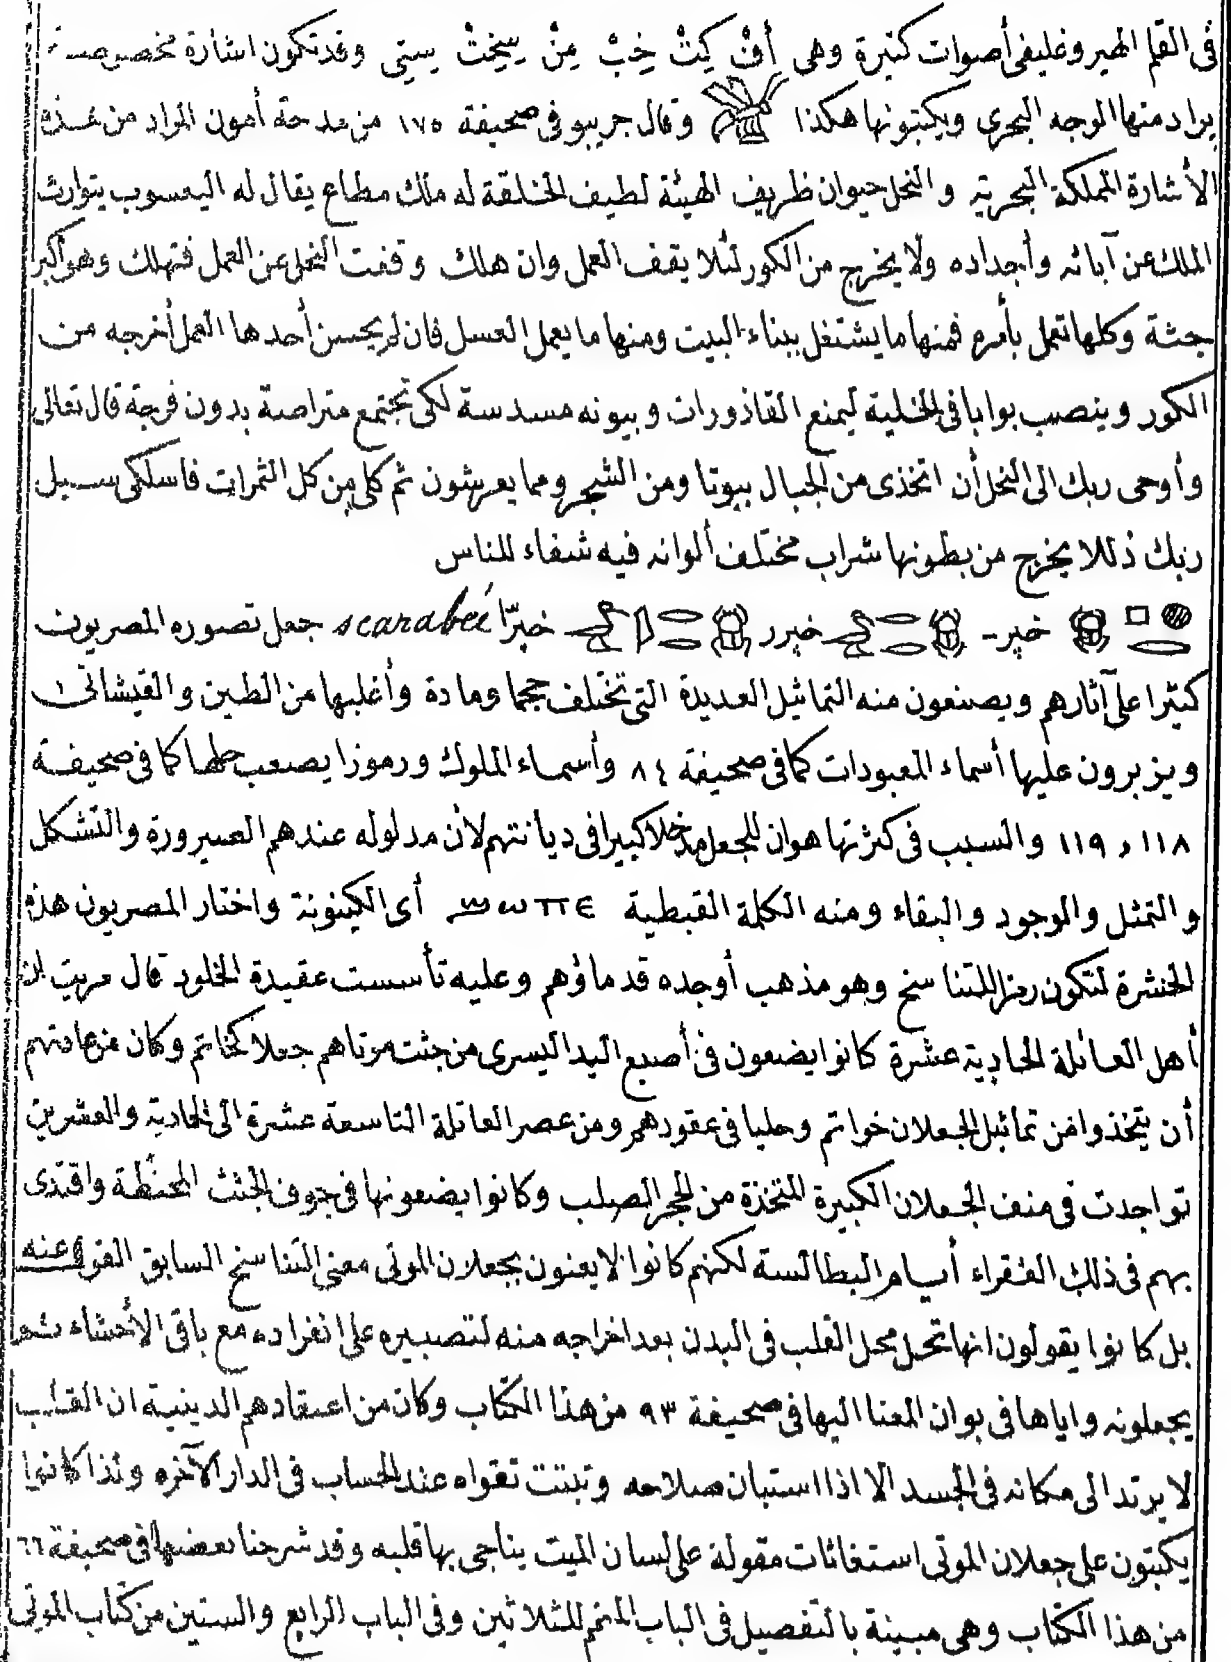 فى القلم الهيروغليفى أصوات كثيرة وهى أَفْ كِتْ خِبْ مِنْ سِيخِتْ سِيتِى وقد تكون اشارة مخصوصة
يراد منها الوجه البحرى ويكتبونها هكذا وقال جريبو فى صحيفة ١٧٥ من مدحة أمون المراد من هذه
الأشارة المملكة البحرية والنحل حيوان ظريف الهيئة لطيف الخلقة له ملك مطاع يقال له اليعسوب يتوارث
الملك عن آبائه وأجداده ولا يخرج من الكور لئلا يقف العمل وان هلك وقفت النحل عن العمل فتهلك وهو أكبر
جثة وكلها تعمل بأمره فمنها ما يشتغل ببناء البيت ومنها ما يعمل العسل فان لم يحسن أحدها العمل أخرجه من
الكور وينصب بوابا فى الخلية ليمنع القاذورات وبيوته مسدسة لكى تجتمع متراصة بدون فرجة قال تعالى
وأوحى ربك الى النحل أن اتخذى من الجبال بيوتا ومن الشجر ومما يعرشون ثم كلى من كل الثمرات فاسلكى سبل
ربك ذللا يخرج من بطونها شراب مختلف ألوانه فيه شفاء للناس
خپر - خپرر خپرّا scarabeé جعل تصوره المصريون
كثيرا على آثارهم ويصنعون منه التماثيل العديدة التى تختلف حجما ومادة وأغلبها من الطين والقيشانى
ويزبرون عليها أسماء المعبودات كما فى صحيفة ٨٤ وأسماء الملوك ورموزا يصعب حلها كما فى صحيفة
١١٨ و ١١٩ والسبب فى كثرتها هو ان للجعل مدخلا كبيرا فى ديانتهم لأن مدلوله عندهم الصيرورة والتشكل
والتمثل والوجود والبقاء ومنه الكلمة القبطية ϣⲱⲡⲉ أى الكينونة واختار المصريون هذه
الخنشرة لتكون رمزا للتناسخ وهو مذهب أوجده قدماؤهم وعليه تأسست عقيدة الخلود قال مريت ان
أهل العائلة الحادية عشرة كانوا يضعون فى أصبع اليد اليسرى من جثت موتاهم جعلا كخاتم وكان من عادتهم
أن يتخذوا من تماثيل الجعلان خواتم وحليا فى عقودهم ومن عصر العائلة التاسعة عشرة الى الحادية والعشرين
تواجدت فى منف الجعلان الكبيرة المتخذة من الحجر الصلب وكانوا يضعونها فى جوف الجثث المحنطة واقتدى
بهم فى ذلك الفقراء أيام البطالسة لكنهم كانوا لا يعنون بجعلان الموتى معنى التناسخ السابق القول عنه
بل كانوا يقولون انها تحل محل القلب فى البدن بعد اخراجه منه لتصبيره على انفراده مع باقى الأحشاء ثم
يجعلونه واياها فى بوان المعنا اليها فى صحيفة ٩٣ من هذا الكتاب وكان من اعتقادهم الدينية ان القلب
لا يرتد الى مكانه فى الجسد الا اذا استبان صلاحه وثبتت تقواه عند الحساب فى الدار الآخره ولذا كانوا
يكتبون على جعلان الموتى استغاثات مقولة على لسان الميت يناجى بها قلبه وقد شرحنا بعضها فى صحيفة ٦٦
من هذا الكتاب وهى مبينة بالتفصيل فى الباب المتمم للثلاثين وفى الباب الرابع والستين من كتاب الموتى